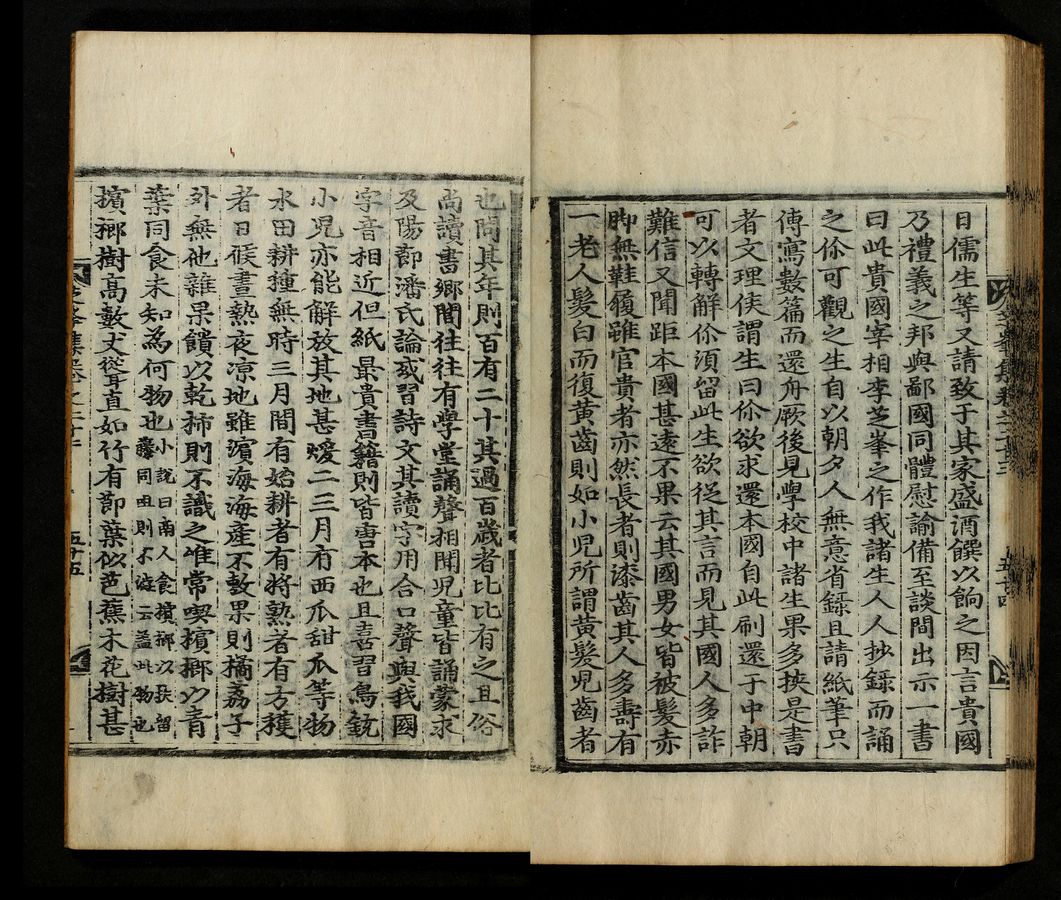 日儒生等又請致于其家盛酒饌以餉之因言貴國
乃禮義之邦與鄙國同體慰諭備至談間出示一書
曰此貴國宰相李芝峯之作我諸生人人抄錄而誦
之你可觀之生自以朝夕人無意省錄且請紙筆只
傳寫數篇而還舟厥後見學校中諸生果多挾是書
者文理侯謂生曰你欲求還本國自此刷還于中朝
可以轉解你須留此生欲從其言而見其國人多詐
難信又聞距本國甚遠不果云其國男女皆被髮赤
脚無鞋履雖官貴者亦然長者則漆齒其人多壽有
一老人髮白而復黃齒則如小兒所謂黃髮兒齒者
芝峯集卷之二十三 五十四
也問其年則百有二十其過百歲者比比有之且俗
尚讀書鄉閭往往有學堂誦聲相聞兒童皆誦蒙求
及陽節潘氏論或習詩文其讀字用合口聲與我國
字音相近但紙最貴書籍則皆唐本也且喜習鳥銃
小兒亦能解放其地甚煖二三月有西瓜甜瓜等物
水田耕種無時三月間有始耕者有將熟者有方穫
者日候晝熱夜凉地雖濱海海產不敷果則橘荔子
外無他雜果饋以乾柿則不識之唯常喫檳榔以青
葉同食未知爲何物也小說曰南人食檳榔以扶留
藤同咀則不澁云蓋此物也
檳榔樹高數丈從耳直如竹有節葉似芭蕉木花樹甚
芝峯集卷之二十 五十五